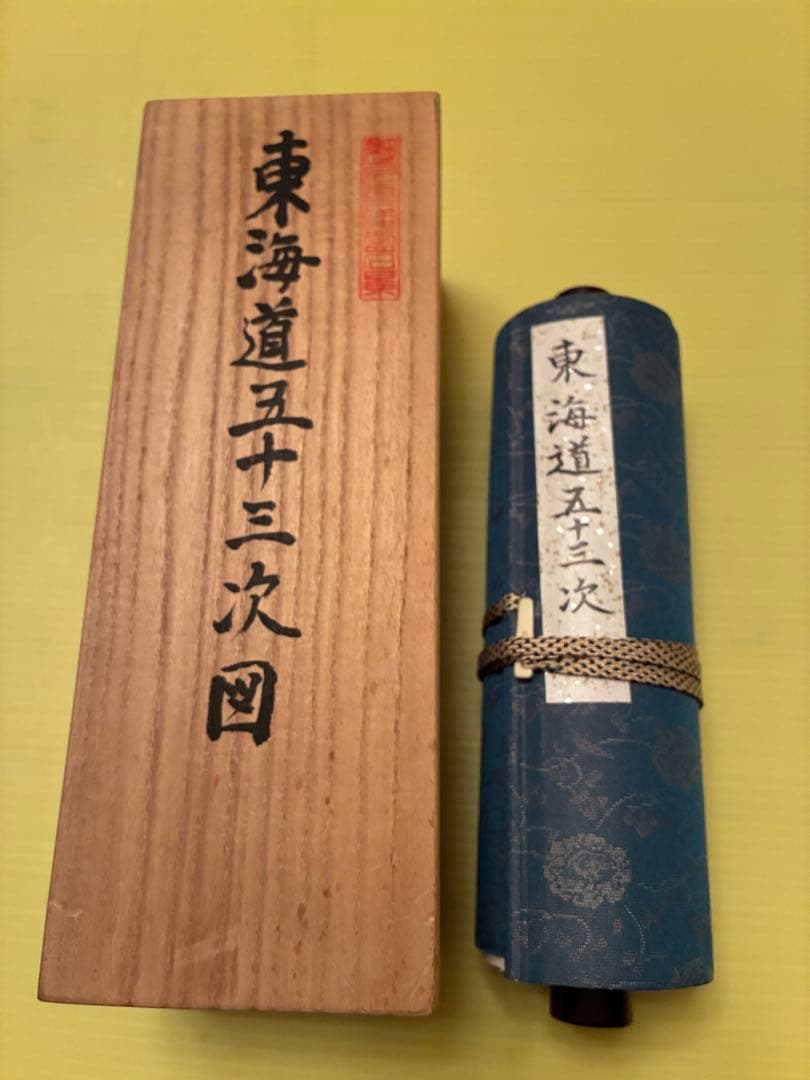 東海道五十三次図
東海道五十三次